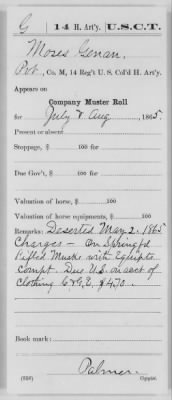 G | 14 H. Art'y. | U.S.C.T.
Moses Genan,
Pvt, Co. M, 14 Reg't U. S. Col'd H. Art'y.
Appears on
Company Muster Roll
for July & Aug, 1865
Present or absent
Stoppage, $ 100 for
Due Gov't, $ 100 for
Valuation of horse, $ 100
Valuation of horse equipments, $ 100
Remarks: Deserted May 2, 1865
Charges – On Springfd
Rifled Musket with Equipts
Compt. Due U.S. on acct of
Clothing C&G.E. $4.70.
Book mark:
Palmer
(858) Copyist.